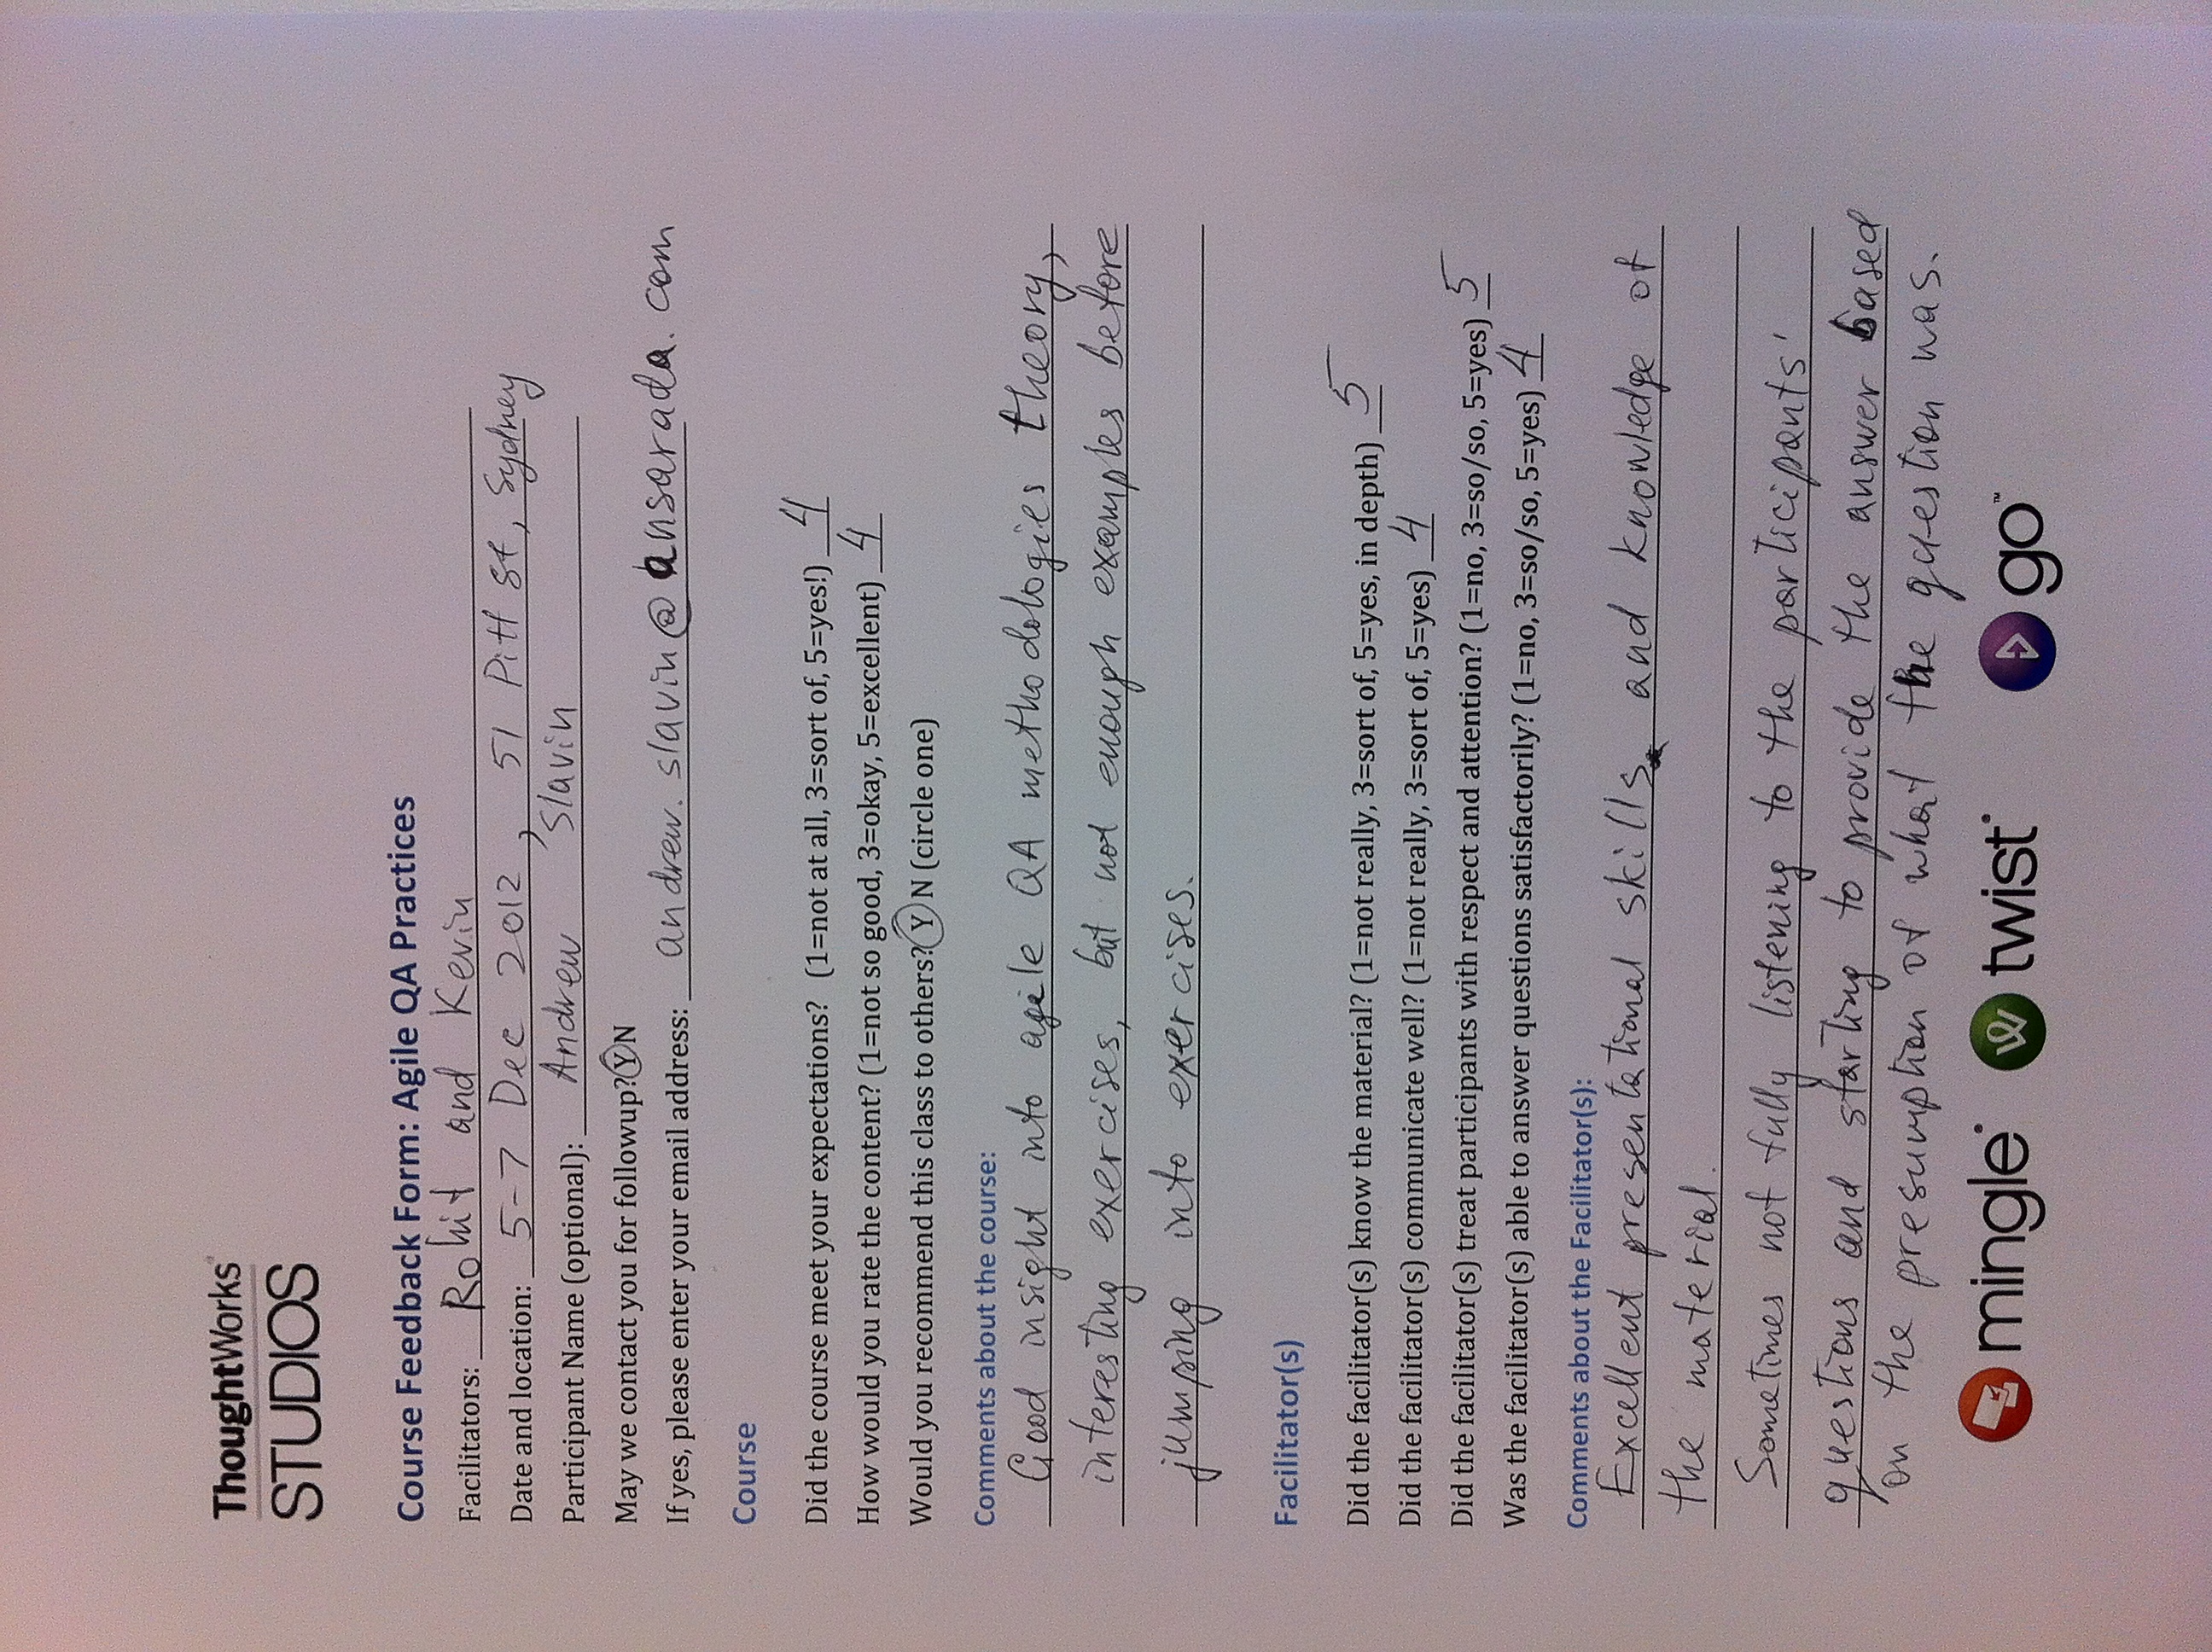 ThoughtWorks®
STUDIOS
Course Feedback Form: Agile QA Practices
Facilitators: Rohit and Kevin
Date and location: 5-7 Dec 2012, 51 Pitt St, Sydney
Participant Name (optional): Andrew Slavin
May we contact you for followup? Y N
If yes, please enter your email address: andrew.slavin@ansarada.com
Course
Did the course meet your expectations? (1=not at all, 3=sort of, 5=yes!) 4
How would you rate the content? (1=not so good, 3=okay, 5=excellent) 4
Would you recommend this class to others? Y N (circle one)
Comments about the course:
Good insight into agile QA methodologies theory,
interesting exercises, but not enough examples before
jumping into exercises.
Facilitator(s)
Did the facilitator(s) know the material? (1=not really, 3=sort of, 5=yes, in depth) 5
Did the facilitator(s) communicate well? (1=not really, 3=sort of, 5=yes) 4
Did the facilitator(s) treat participants with respect and attention? (1=no, 3=so/so, 5=yes) 5
Was the facilitator(s) able to answer questions satisfactorily? (1=no, 3=so/so, 5=yes) 4
Comments about the Facilitator(s):
Excellent presentational skills and knowledge of
the material.
Sometimes not fully listening to the participants'
questions and starting to provide the answer based
on the presumption of what the question was.
mingle® twist® go™